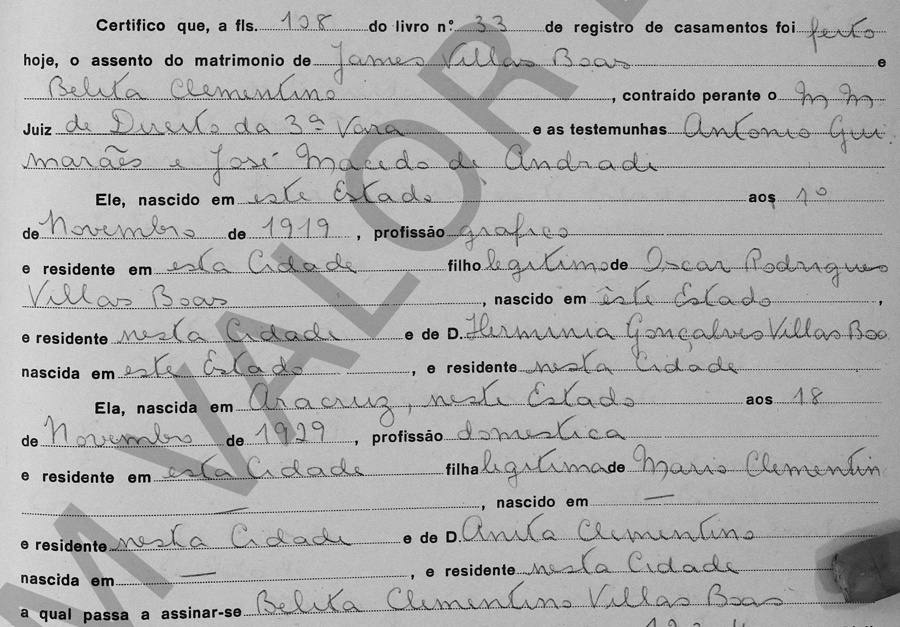 Certifico que, a fls. 198 do livro nº 33 de registro de casamentos foi feito
hoje, o assento do matrimonio de James Villas Boas e
Belita Clementino, contraído perante o M M
Juiz de Direito da 3ª Vara e as testemunhas Antonio Gui
marães e José Macedo de Andrade
Ele, nascido em este Estado aos 1º
de Novembro de 1919, profissão grafico
e residente em esta Cidade filho legitimo de Oscar Rodrigues
Villas Boas, nascido em êste Estado,
e residente nesta Cidade e de D. Herminia Gonçalves Villas Boa
nascida em este Estado, e residente nesta Cidade
Ela, nascida em Aracruz, neste Estado aos 18
de Novembro de 1929, profissão domestica
e residente em esta Cidade filha legitima de Mario Clementin
—, nascido em —
e residente nesta Cidade e de D. Anita Clementino
nascida em —, e residente nesta Cidade
a qual passa a assinar-se Belita Clementino Villas Boas
M VALOR